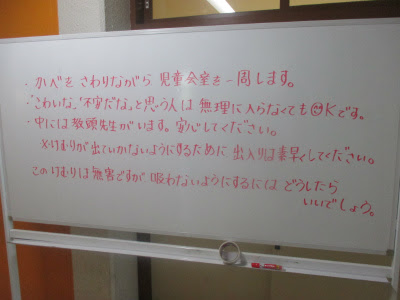 ・かべを さわりながら 児童会室を一周します。
・「こわいな」「不安だな」と思う人は 無理に入らなくてもOKです。
・中には教頭先生がいます。安心してください。
※けむりが出ていかないようにするために 出入りは素早くしてください。
このけむりは無害ですが 吸わないようにするには どうしたら
いいでしょう。